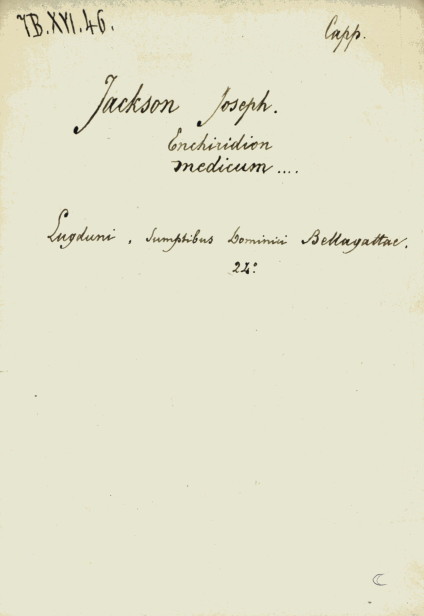 7B.XVI.46.
Capp.
Jackson Joseph.
Enchiridion
medicum ....
Lugduni, sumptibus Dominici Bellagattae.
24°
C